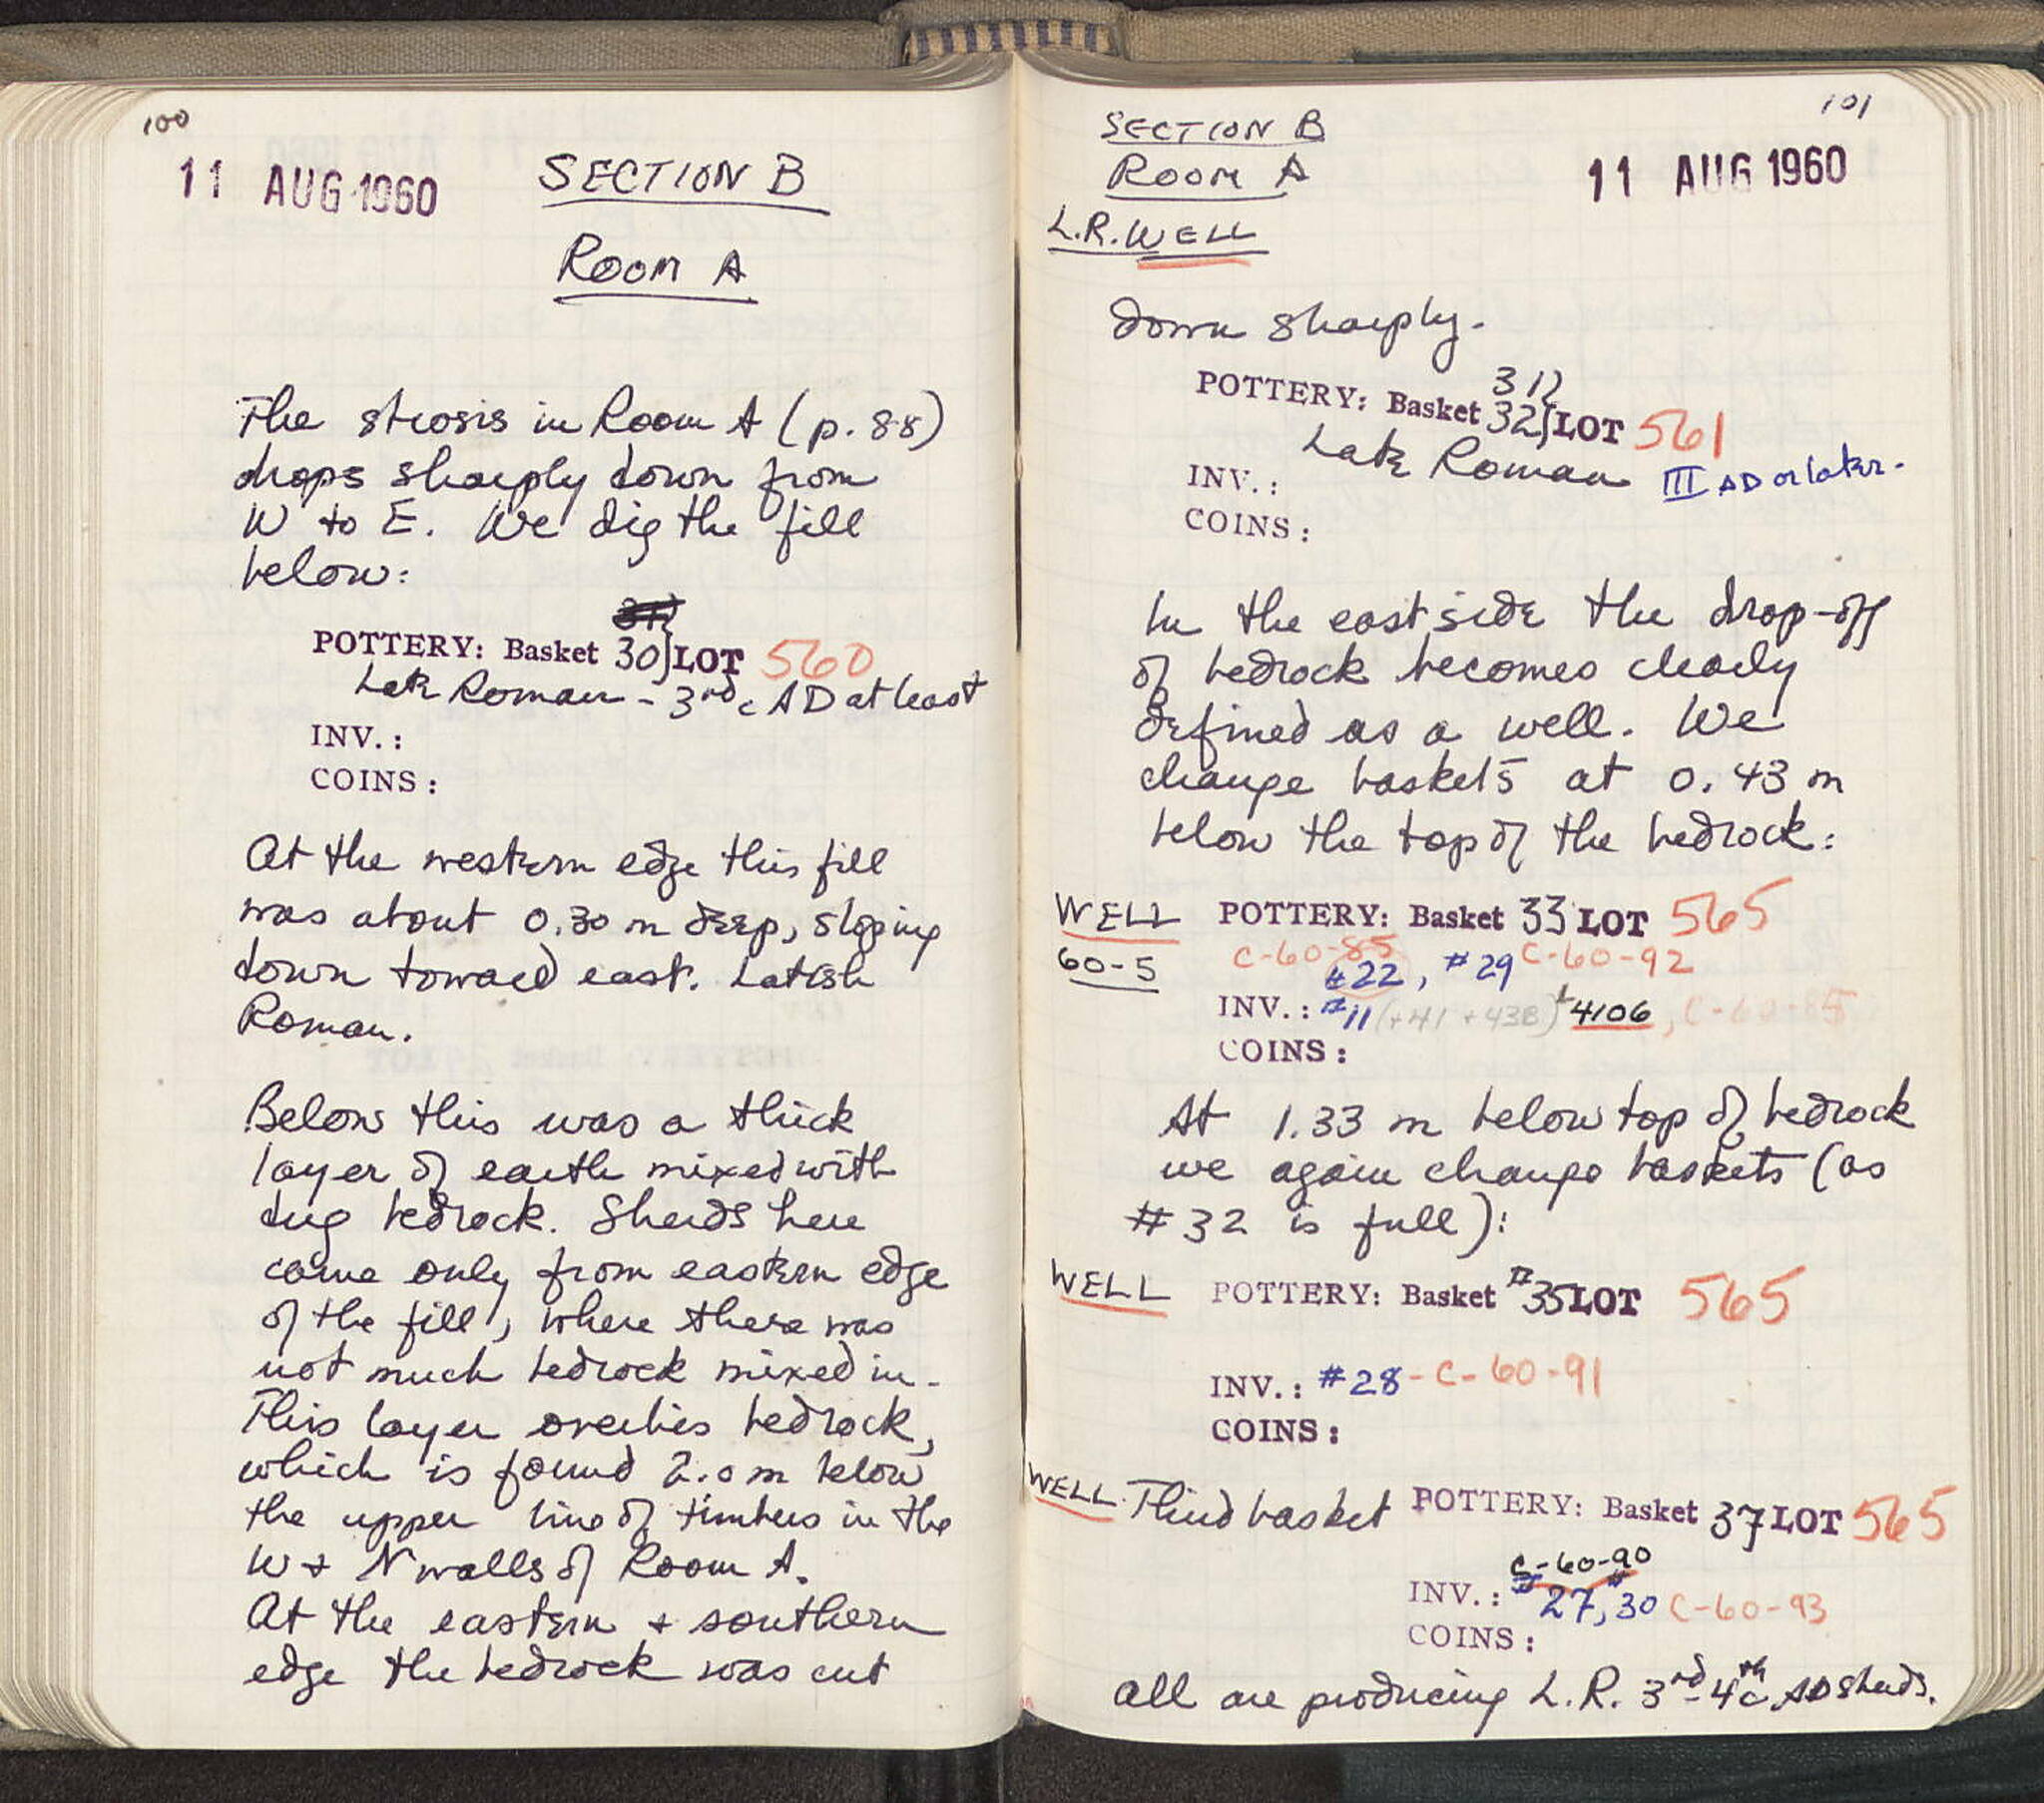 100
11 AUG 1960
SECTION B
ROOM A
The strosis in Room A (p. 88)
drops sharply down from
W to E. We dig the fill
below:
POTTERY: Basket 30) LOT 560
Late Roman - 3rd c AD at least
INV.:
COINS:
At the western edge this fill
was about 0.30 m deep, sloping
down toward east. Latish
Roman.
Below this was a thick
layer of earth mixed with
dug bedrock. Sherds here
came only from eastern edge
of the fill, where there was
not much bedrock mixed in.
This layer overlies bedrock,
which is found 2.0 m below
the upper line of timbers in the
W + N walls of Room A.
At the eastern + southern
edge the bedrock was cut
101
SECTION B
ROOM A
11 AUG 1960
L.R. WELL
down sharply.
31)
POTTERY: Basket 32) LOT 561
Late Roman III AD or later.
INV.:
COINS:
In the east side the drop-off
of bedrock becomes clearly
defined as a well. We
change baskets at 0.43 m
below the top of the bedrock:
WELL POTTERY: Basket 33 LOT 565
60-5 C-60-85 C-60-92
#22, #29
INV.: #11 (+41 + 43B) 4106, C-60-85
COINS:
At 1.33 m below top of bedrock
we again change baskets (as
#32 is full):
WELL POTTERY: Basket #35 LOT 565
INV.: #28 - C-60-91
COINS:
WELL. Third basket POTTERY: Basket 37 LOT 565
C-60-90
INV.: #27, #30 C-60-93
COINS:
All are producing L.R. 3rd-4th c AD sherds.